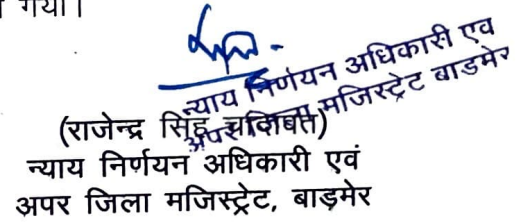 गया।
न्याय निर्णयन अधिकारी एव
अपर जिला मजिस्ट्रेट बाडमेर
(राजेन्द्र सिंह
न्याय निर्णयन अधिकारी एवं
अपर जिला मजिस्ट्रेट, बाड़मेर